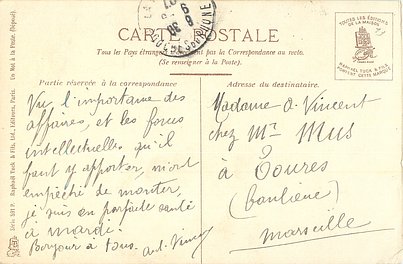 CARTE POSTALE
Tous les Pays étrangers n'acceptent pas la Correspondance au recto.
(Se renseigner à la Poste).
TOUTES LES ÉDITIONS
DE LA MAISON
RAPHAEL TUCK & FILS
PORTENT CETTE MARQUE
Partie réservée à la correspondance
Adresse du destinataire.
Vu l'importance des
affaires, et les forces
intellectuelles qu'il
faut y apporter, m'ont
empêché de monter,
je suis en parfaite santé
à mardi.
Bonjour à tous.
ant. Vincent
Madame A. Vincent
chez Mr Mus
à Toures
(banlieue)
Marseille
Raphael Tuck & Fils, Ltd, Editeurs, Paris.